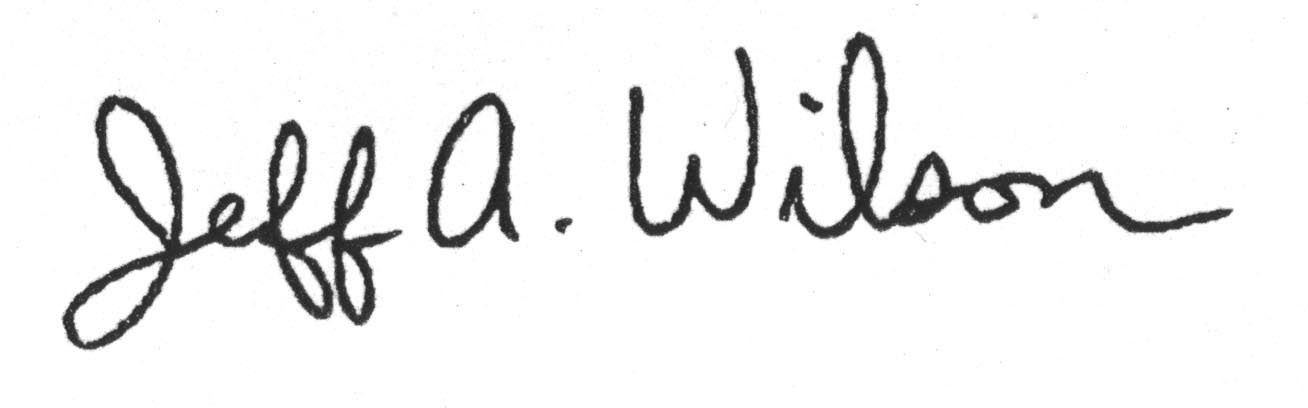 Jeff A. Wilson